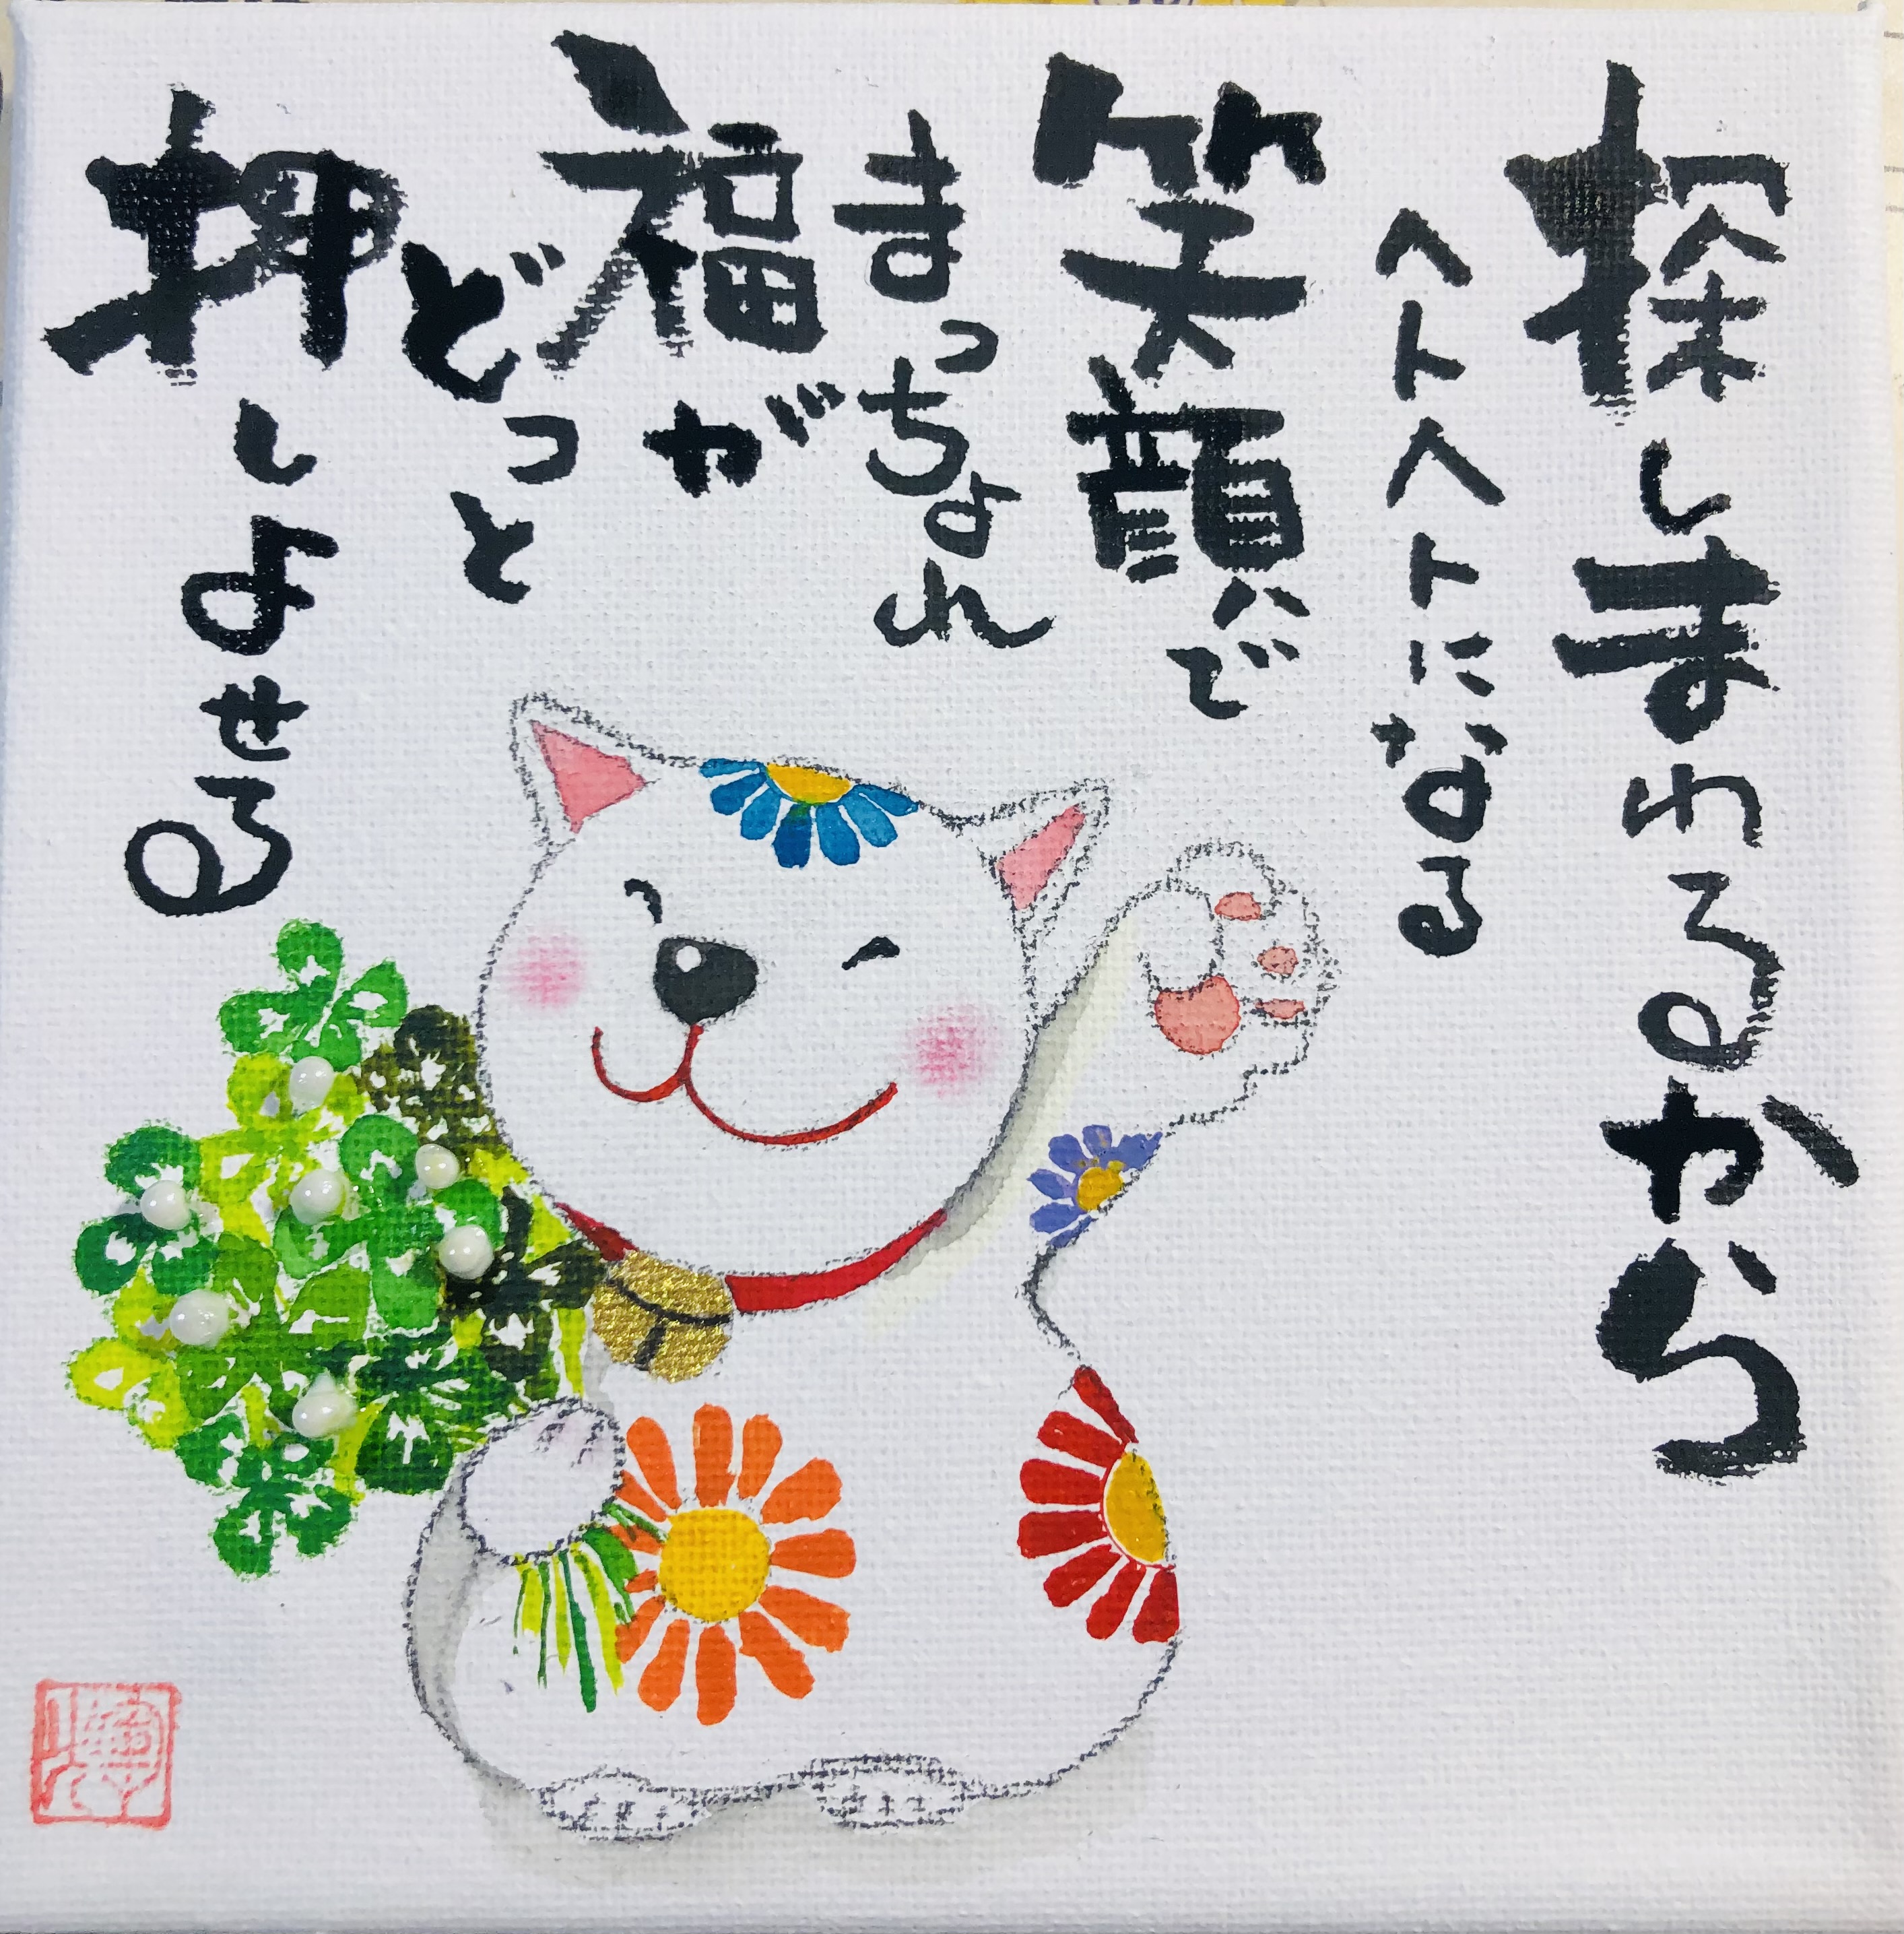 探しまわるから
ヘトヘトになる
笑顔で
まっちょれ
福が
どっと
押しよせる